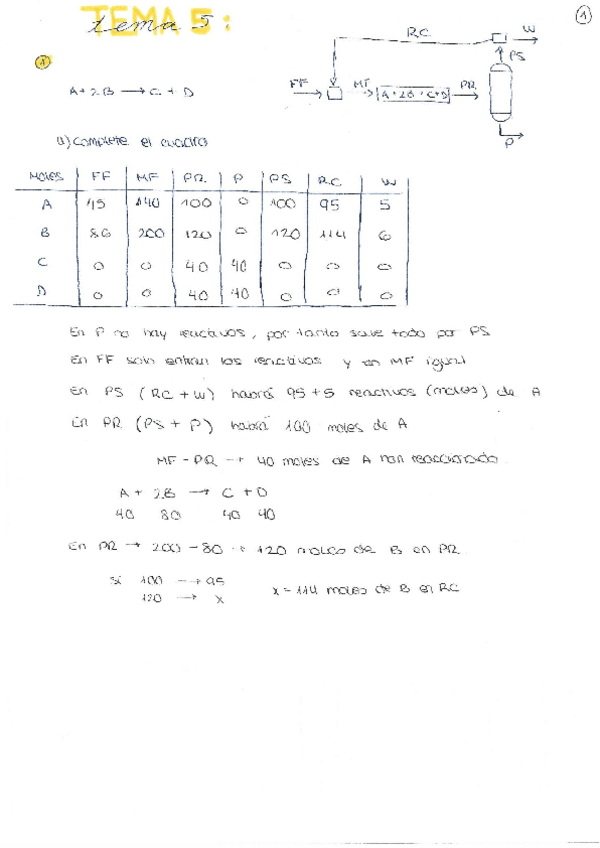 TEMA 5:
tema 5:
1
1
A + 2B → C + D
RC
W
PS
FF
MF
A + 2B → C + D
PR
P
a) Complete el cuadro
Moles FF MF PR P PS RC W
A 45 140 100 0 100 95 5
B 86 200 120 0 120 114 6
C 0 0 40 40 0 0 0
D 0 0 40 40 0 0 0
En P no hay reactivos, por tanto sale todo por PS
En FF solo entran los reactivos y en MF igual
En PS (RC + W) habrá 95 + 5 reactivos (moles) de A
En PR (PS + P) habrá 100 moles de A
MF - PR → 40 moles de A han reaccionado
A + 2B → C + D
40 80 40 40
En PR → 200 - 80 → 120 moles de B en PR
Si 100 → 95
120 → x
x = 114 moles de B en RC